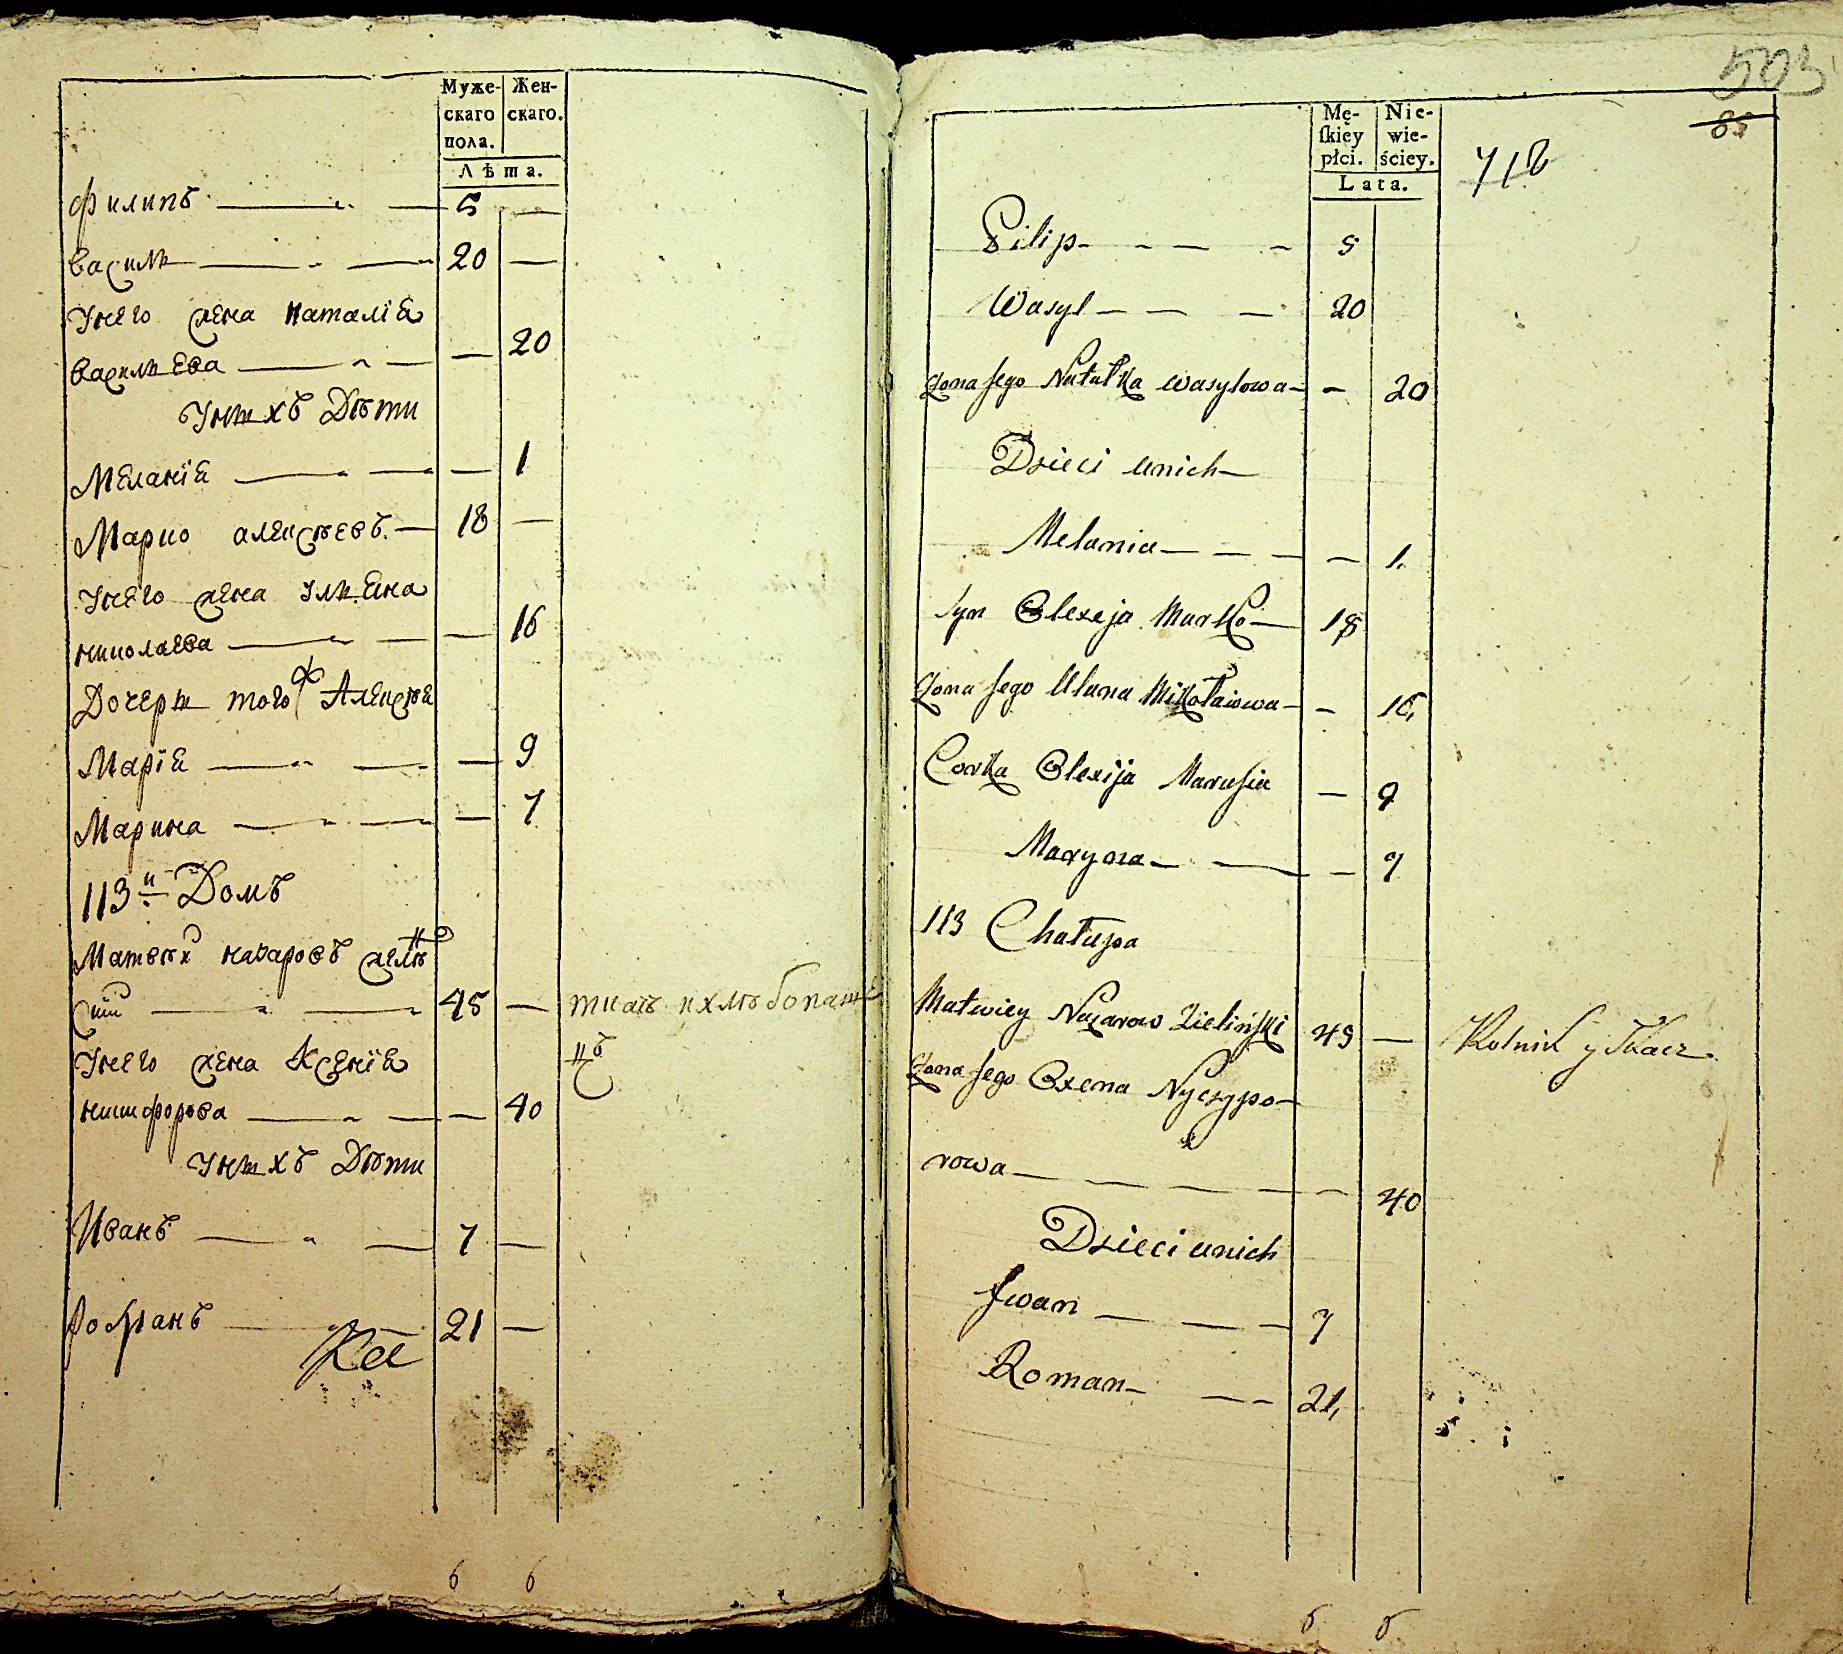 Муже-
скаго
пола.
Жен-
скаго.
Лѣта.
Филипъ — — 5 —
Василь — — 20 —
Унего жена Наталїя
Васильева — — — 20
Унихъ Дѣти
Меланїя — — — 1
Марко Алексѣевъ — 18 —
Унего жена Ульяна
Николаева — — — 16
Дочери того ж Алексѣя
Марїя — — — 9
Марина — — — 7
113й Домъ
Матвѣй Назаровъ Желѣн
скїй — — 45 — ткачъ и хлѣбопаше
цъ
Унего жена Ксенїя
Никифорова — — — 40
Унихъ Дѣти
Иванъ — — 7 —
Романъ — — 21 —
6 6
503
85
Mę-
skiey
płci.
Nie-
wie-
ściey.
Lata.
718
Pilip — — — 5
Wasyl — — — 20
Zona Jego Natałka Wasylowa — — 20
Dzieci unich —
Melania — — — — 1.
Syn Olexeja Marko — 18
Zona Jego Ulana Mikołaiowa — — 16,
Corka Olexija Marusia — 9
Maryna — — — 7
113 Chałupa
Matwiey Nazarow Zieliński 45 — Rolnik y Tkacz.
Zona Jego Oxena Nyczypo-
rowa — — — — — 40
Dzieci unich
Jwan — — — 7
Roman — — — 21,
6 6